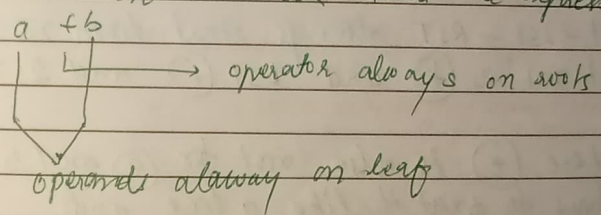 a + b
operator always on roots
operands alaway on leaf